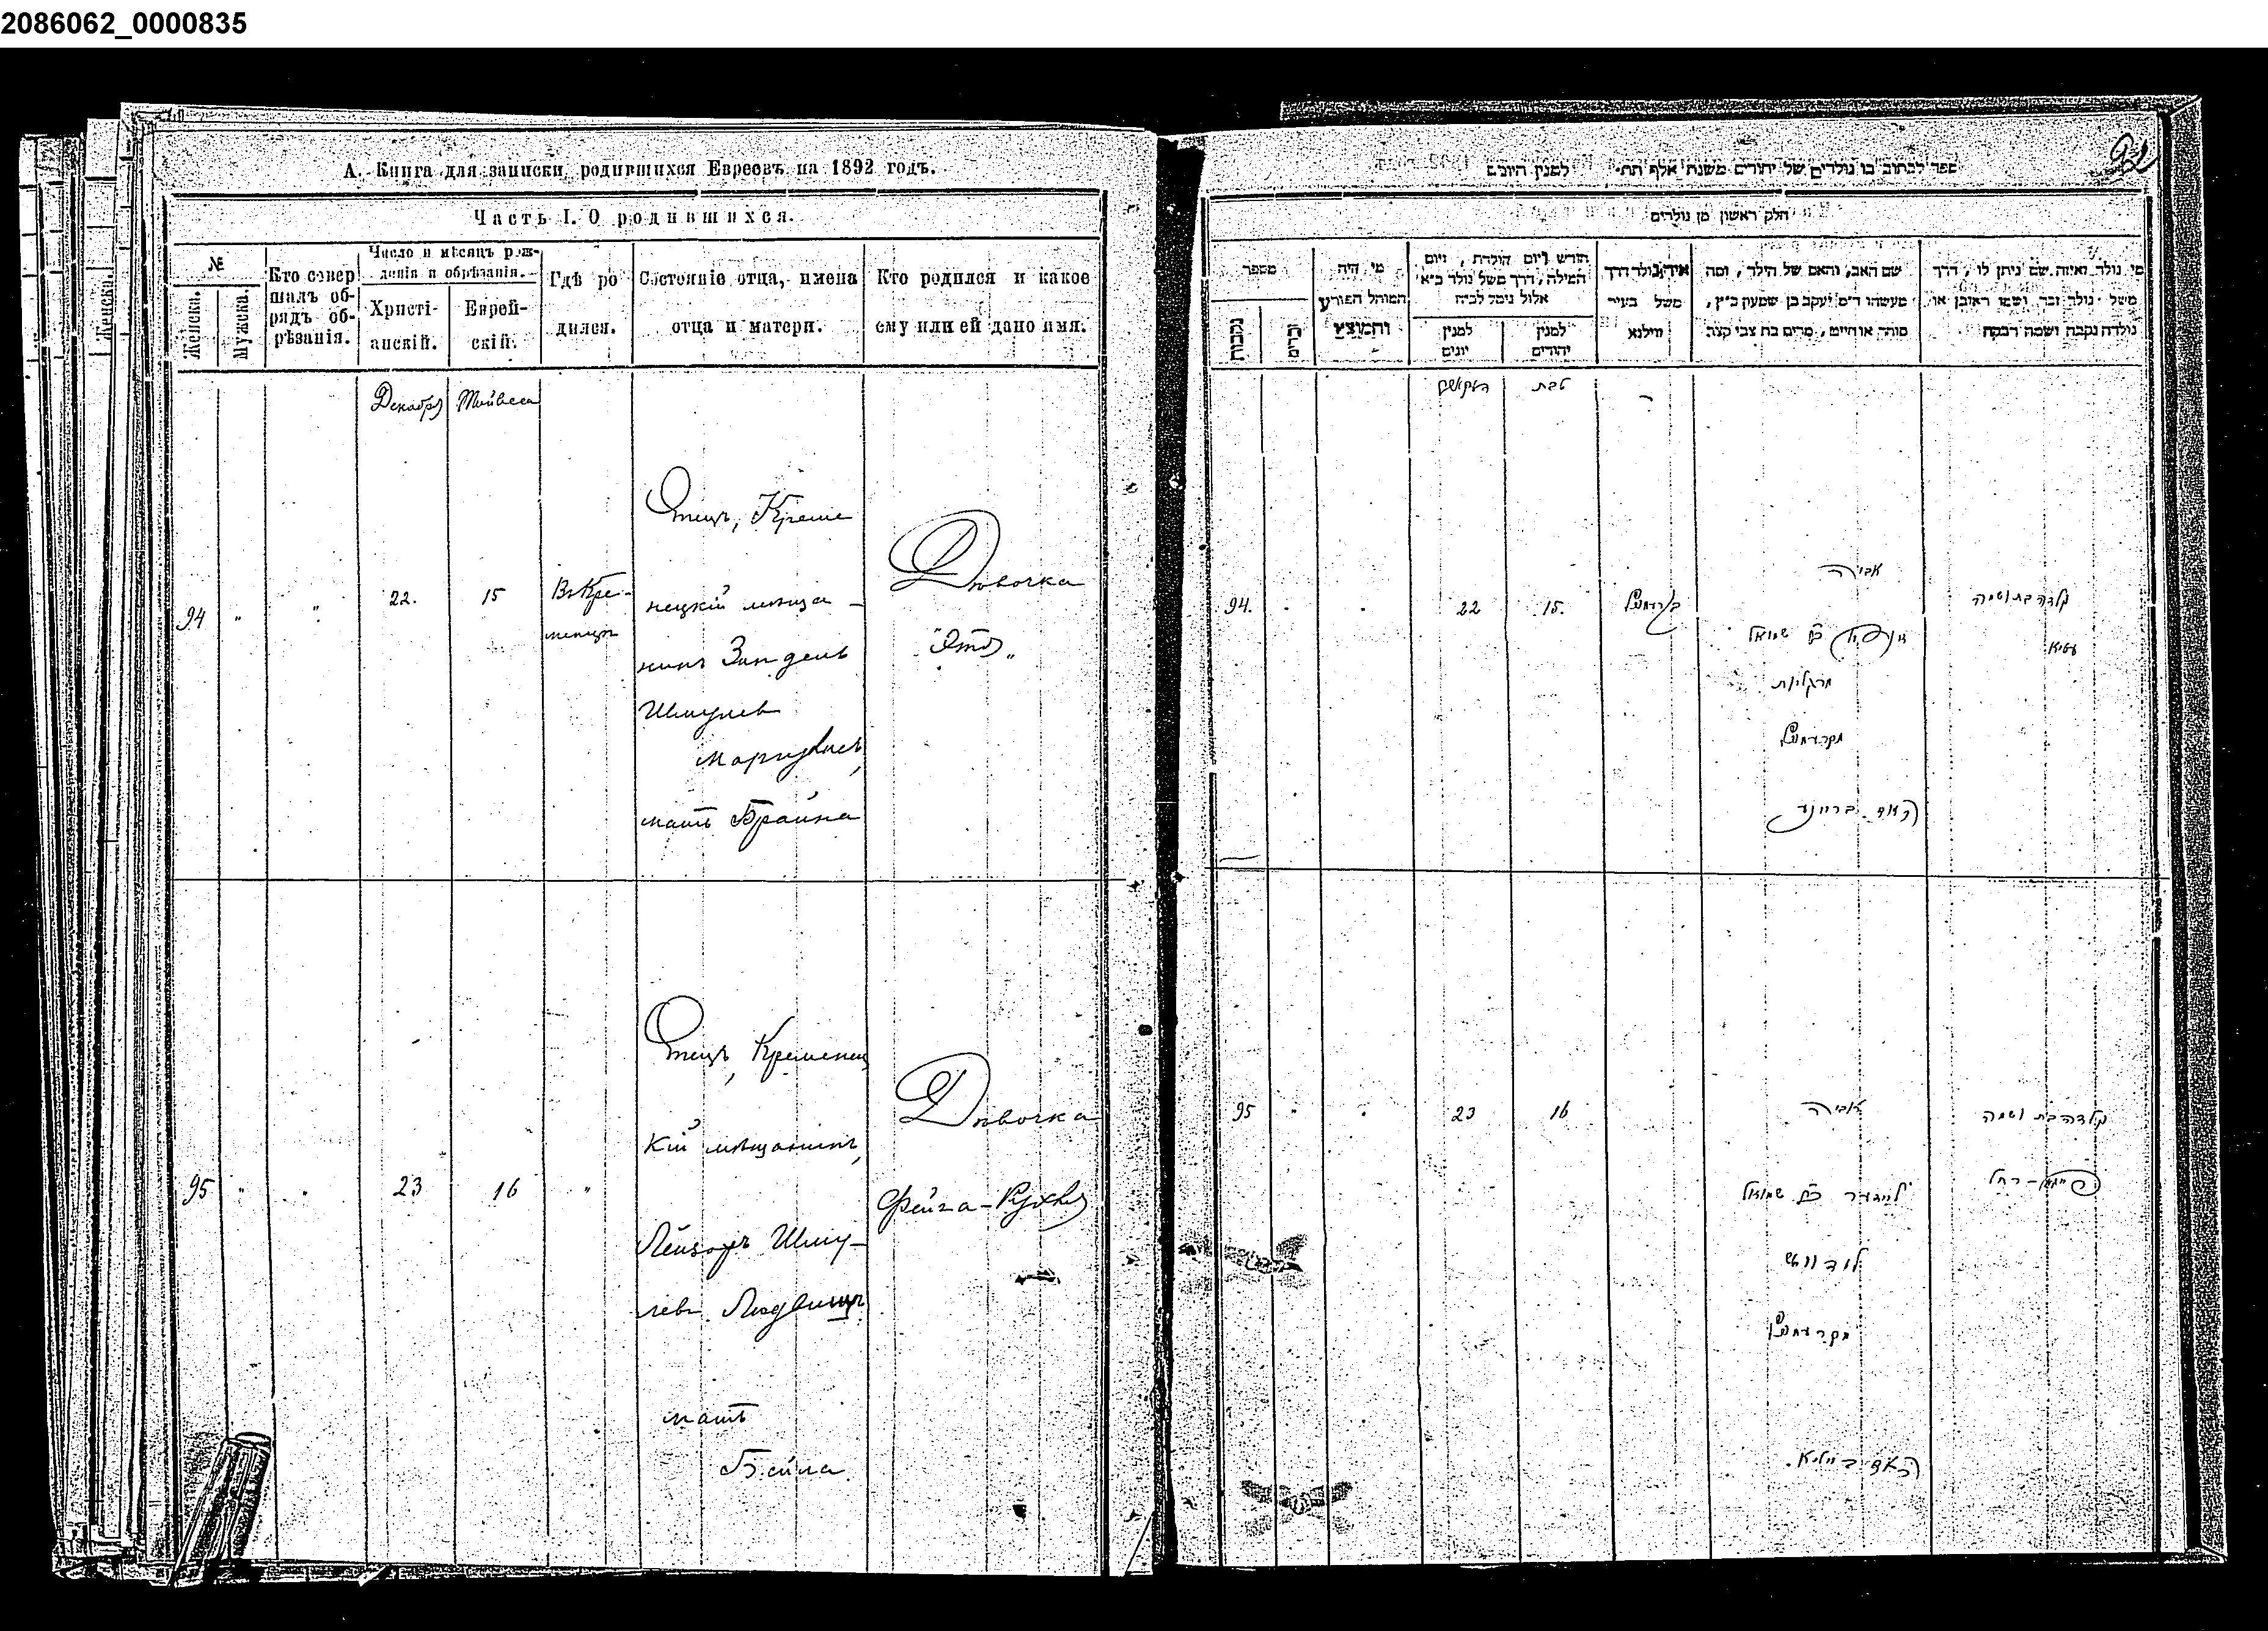 2086062_0000835
А. Книга для записки родившихся Евреевъ на 1892 годъ.
Часть I. О родившихся.
№
Женска.
Мужска.
Кто совер
шалъ об-
рядъ об-
рѣзанія.
Число и мѣсяцъ рож-
денія и обрѣзанія.
Христі-
анскій.
Еврей-
скій.
Гдѣ ро
дился.
Состояніе отца, имена
отца и матери.
Кто родился и какое
ему или ей дано имя.
Декабря
Тейвеса
94
"
"
22.
15
Въ Кре-
менцѣ
Отецъ, Креме
нецкій мѣща-
нинъ Зандель
Шмулев
матъ Брайна
Дѣвочка
95
"
"
23
16
"
Отецъ, Кременец
кій мѣщанинъ,
Лейзоръ Шму-
левъ
матъ
Бейла
Дѣвочка
Фейга-Рухля
ספר לכתוב בו נולדים של יהודים משנת אלף תת׳ למנין היונים
חלק ראשון מן נולדים
מספר
נקבות
זכרים
מי היה
המוהל הפורע
והמוצץ
חודש ויום הולדת, ויום
המילה, דרך משל נולד כ״א
אלול נימל לכ״ח
למנין
יונים
למנין
יהודים
איה נולד דרך
משל בעיר
ווילנא
שם האב, והאם של הילד, ומה
מעשהו ר״מ יעקב בן שמעון כ״ץ,
סוחר או חייט, מרים בת צבי קצב
מי נולד ואיזה שם ניתן לו, דרך
משל נולד זכר ושמו ראובן או
נולדה נקבה ושמה רבקה
דעקאבר
טבת
94.
22
15.
אביה
שמואל
מרגליות
מקרעמניץ
האם בריינע
ילדה בת ושמה
95
23
16
אביה
לייזער ב״ר שמואל
מקרעמניץ
האם ביילא.
ילדה בת ושמה
פייגא-רחל